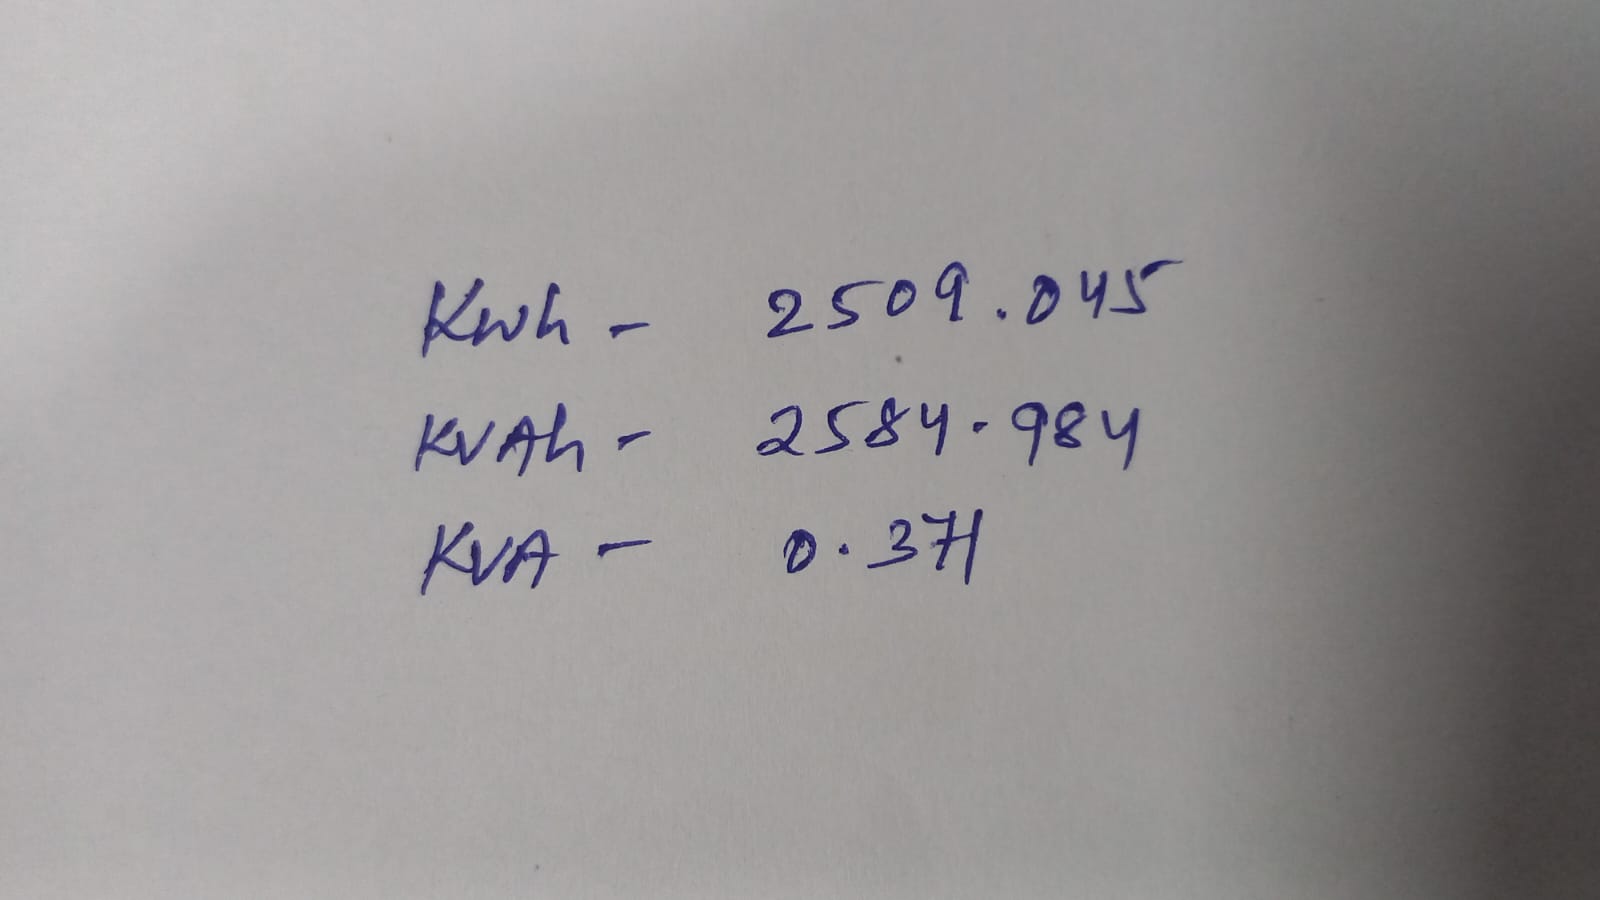 Kwh - 2509.045
KVAh - 2584.984
KVA - 0.371